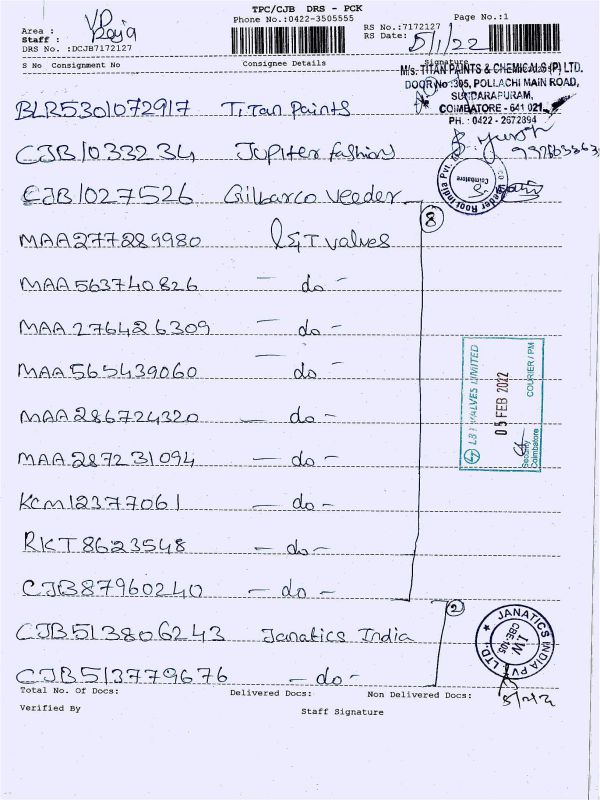 TPC/CJB DRS - PCK
Phone No.:0422-3505555 Page No.:1
Area : Raja
Staff :
DRS No. :DCJB7172127
RS No.:7172127
RS Date: 5/1/22
S No Consignment No Consignee Details Signature
M/s. TITAN PAINTS & CHEMICALS (P) LTD.
DOOR No :305, POLLACHI MAIN ROAD,
SUNDARAPURAM,
COIMBATORE - 641 021
PH. : 0422 - 2672894
BLR5301072917 Titan Paints
CJB1033234 Jupiter fashions
CJB1027526 Gilbarco Veeder
Coimbatore
Veeder Root India Pvt.
8
MAA277289980 L&T valves
MAA563740826 - do -
MAA276426309 - do -
MAA565439060 - do -
MAA286724320 - do -
MAA287231094 - do -
KCM12377061 - do -
RKT8623548 - do -
CJB87960240 - do -
L&T VALVES LIMITED
05 FEB 2022
COURIER / PM
Security
Coimbatore
2
CJB513806243 Janatics India
CJB513779676 - do -
JANATICS INDIA PVT. LTD.
IW
CBE-105
5/2/22
Total No. Of Docs: Delivered Docs: Non Delivered Docs:
Verified By Staff Signature